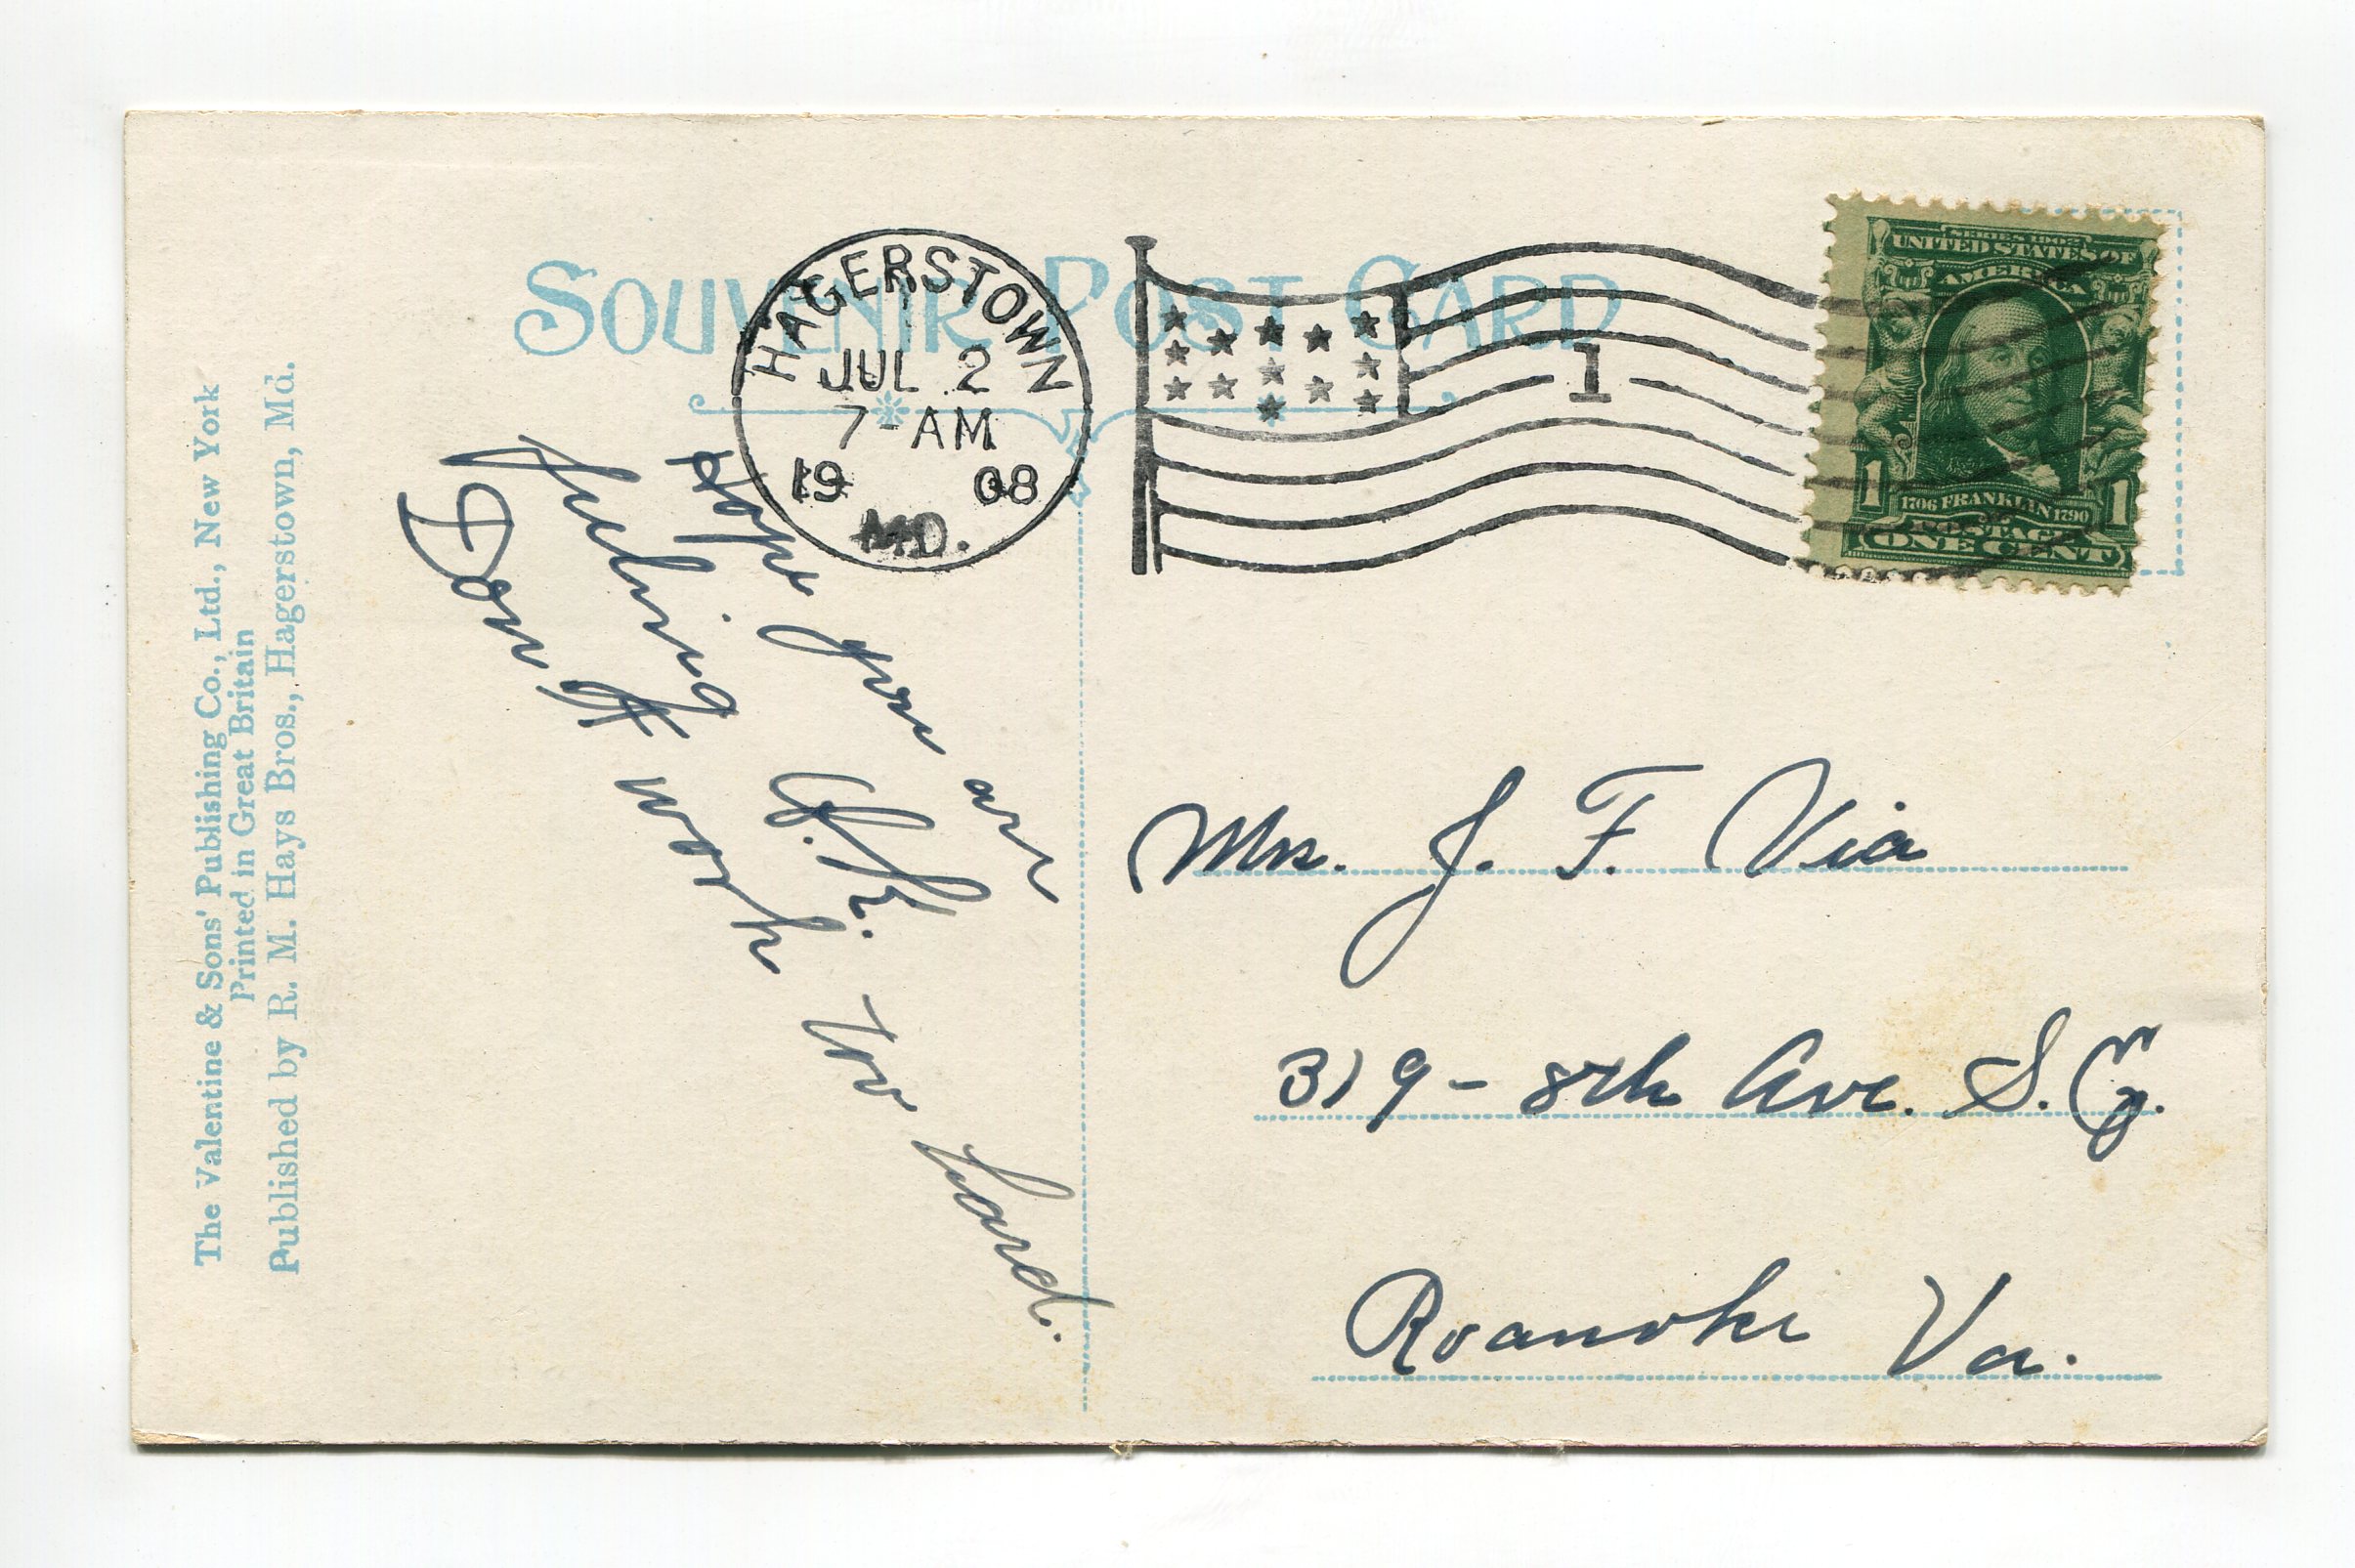 SOUVENIR POST CARD
HAGERSTOWN
JUL 2
7-AM
1908
MD.
1
SERIES 1902
UNITED STATES OF
AMERICA
1 1706 FRANKLIN 1790 1
POSTAGE
ONE CENT
Hope you are
feeling O.K.
Don't work too hard.
Mrs. J. F. Via
319 - 8th Ave. S.E.
Roanoke Va.
The Valentine & Sons' Publishing Co., Ltd., New York
Printed in Great Britain
Published by R. M. Hays Bros., Hagerstown, Md.